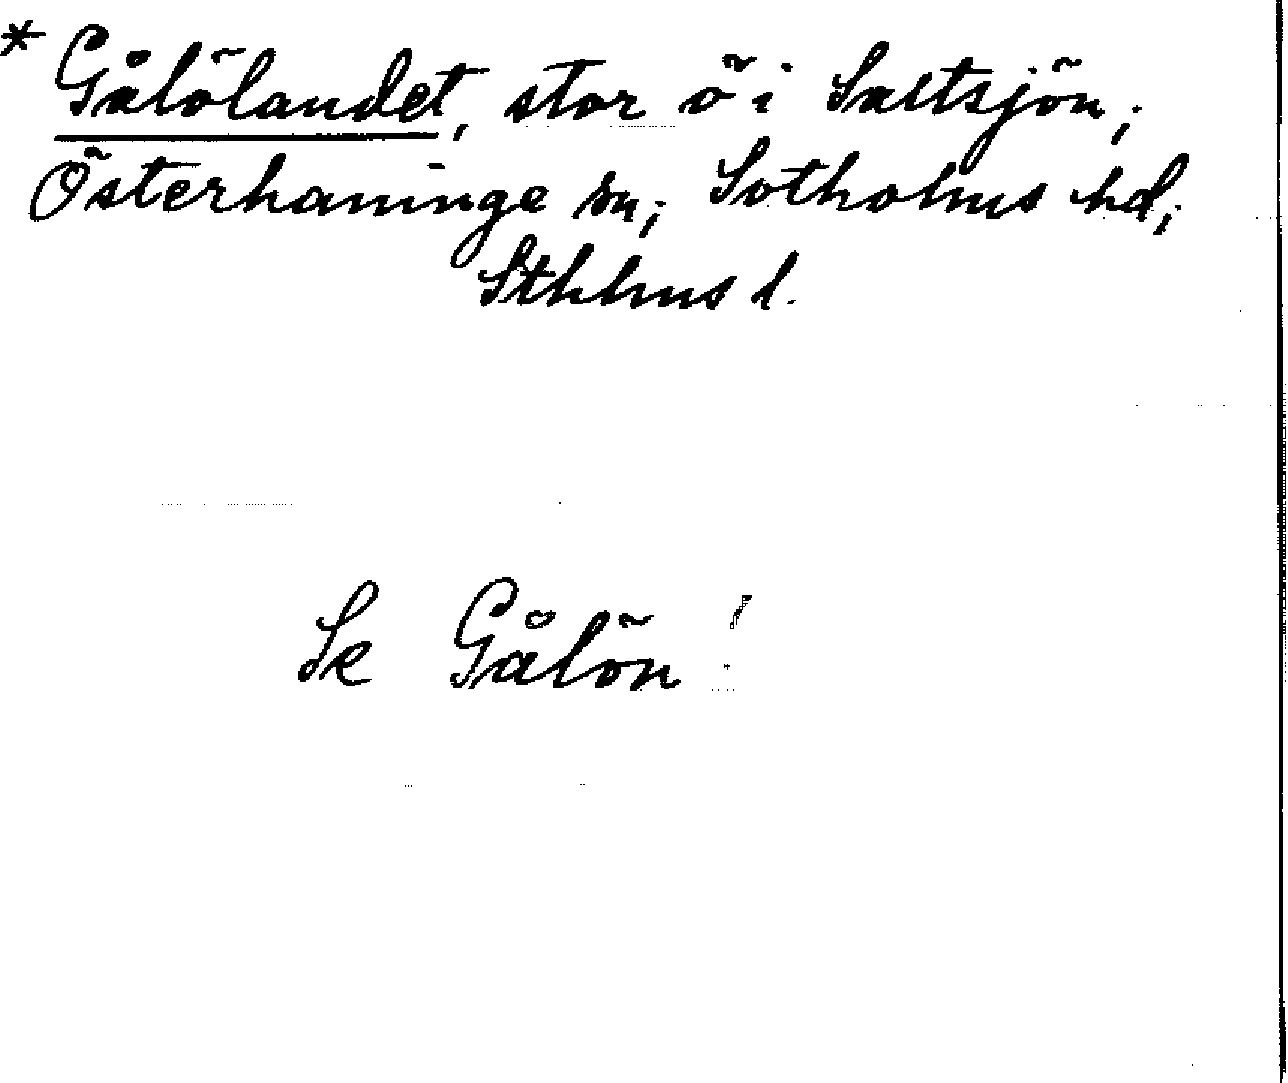 * Gålölandet, stor ö i Saltsjön;
Österhaninge sn; Sotholms hd;
Sthlms l.
Se Gålön!